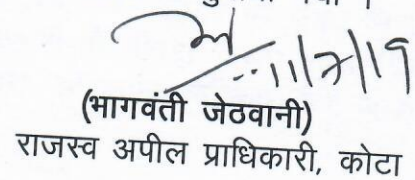 11/7/19
(भागवंती जेठवानी)
राजस्व अपील प्राधिकारी, कोटा